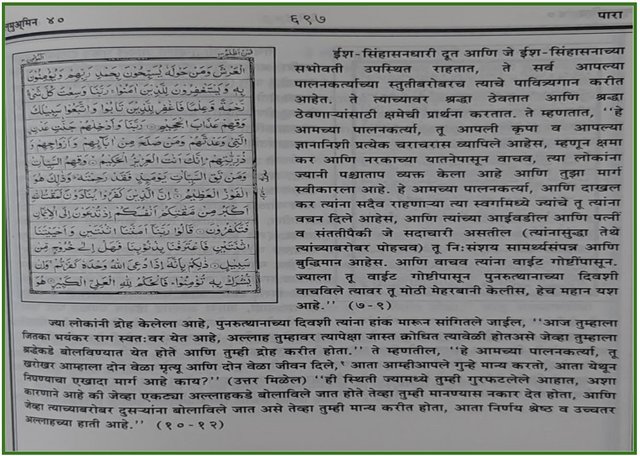 लमुअ्मिन ४०
६९७
पारा
الْعَرْشَ وَمَنْ حَوْلَهٗ يُسَبِّحُوْنَ بِحَمْدِ رَبِّهِمْ وَيُؤْمِنُوْنَ
بِهٖ وَيَسْتَغْفِرُوْنَ لِلَّذِيْنَ اٰمَنُوْا ۚ رَبَّنَا وَسِعْتَ كُلَّ شَيْءٍ
رَّحْمَةً وَّعِلْمًا فَاغْفِرْ لِلَّذِيْنَ تَابُوْا وَاتَّبَعُوْا سَبِيْلَكَ
وَقِهِمْ عَذَابَ الْجَحِيْمِ رَبَّنَا وَاَدْخِلْهُمْ جَنّٰتِ عَدْنِ
الَّتِيْ وَعَدْتَّهُمْ وَمَنْ صَلَحَ مِنْ اٰبَآئِهِمْ وَاَزْوَاجِهِمْ وَ
ذُرِّيّٰتِهِمْ ۚ اِنَّكَ اَنْتَ الْعَزِيْزُ الْحَكِيْمُ وَقِهِمُ السَّيِّاٰتِ
وَمَنْ تَقِ السَّيِّاٰتِ يَوْمَئِذٍ فَقَدْ رَحِمْتَهٗ ۚ وَذٰلِكَ هُوَ
الْفَوْزُ الْعَظِيْمُ اِنَّ الَّذِيْنَ كَفَرُوْا يُنَادَوْنَ لَمَقْتُ اللّٰهِ
اَكْبَرُ مِنْ مَّقْتِكُمْ اَنْفُسَكُمْ اِذْ تُدْعَوْنَ اِلَى الْاِيْمَانِ
فَتَكْفُرُوْنَ قَالُوْا رَبَّنَآ اَمَتَّنَا اثْنَتَيْنِ وَاَحْيَيْتَنَا
اثْنَتَيْنِ فَاعْتَرَفْنَا بِذُنُوْبِنَا فَهَلْ اِلٰى خُرُوْجٍ مِّنْ
سَبِيْلٍ ذٰلِكُمْ بِاَنَّهٗٓ اِذَا دُعِيَ اللّٰهُ وَحْدَهٗ كَفَرْتُمْ ۚ وَاِنْ
يُّشْرَكْ بِهٖ تُؤْمِنُوْا ۚ فَالْحُكْمُ لِلّٰهِ الْعَلِيِّ الْكَبِيْرِ هُوَ
ईश-सिंहासनधारी दूत आणि जे ईश-सिंहासनाच्या
सभोवती उपस्थित राहतात, ते सर्व आपल्या
पालनकर्त्याच्या स्तुतीबरोबरच त्याचे पावित्र्यगान करीत
आहेत. ते त्याच्यावर श्रद्धा ठेवतात आणि श्रद्धा
ठेवणाऱ्यांसाठी क्षमेची प्रार्थना करतात. ते म्हणतात, ‘‘हे
आमच्या पालनकर्ता, तू आपली कृपा व आपल्या
ज्ञानानिशी प्रत्येक चराचरास व्यापिले आहेस, म्हणून क्षमा
कर आणि नरकाच्या यातनेपासून वाचव, त्या लोकांना
ज्यानी पश्चाताप व्यक्त केला आहे आणि तुझा मार्ग
स्वीकारला आहे. हे आमच्या पालनकर्ता, आणि दाखल
कर त्यांना सदैव राहणाऱ्या त्या स्वर्गामध्ये ज्यांचे तू त्यांना
वचन दिले आहेस, आणि त्यांच्या आईवडील आणि पत्नीं
व संततीपैकी जे सदाचारी असतील (त्यांनासुद्धा तेथे
त्यांच्याबरोबर पोहचव) तू निःसंशय सामर्थ्यसंपन्न आणि
बुद्धिमान आहेस. आणि वाचव त्यांना वाईट गोष्टींपासून.
ज्याला तू वाईट गोष्टीपासून पुनरुत्थानाच्या दिवशी
वाचविले त्यावर तू मोठी मेहरबानी केलीस, हेच महान यश
आहे.’’ (७-९)
ज्या लोकांनी द्रोह केलेला आहे, पुनरुत्थानाच्या दिवशी त्यांना हांक मारून सांगितले जाईल, ‘‘आज तुम्हाला
जितका भयंकर राग स्वतःवर येत आहे, अल्लाह तुम्हावर त्यापेक्षा जास्त क्रोधित त्यावेळी होतअसे जेव्हा तुम्हाला
श्रद्धेकडे बोलविण्यात येत होते आणि तुम्ही द्रोह करीत होता.’’ ते म्हणतील, ‘‘हे आमच्या पालनकर्ता, तू
खरोखर आम्हाला दोन वेळा मृत्यू आणि दोन वेळा जीवन दिले, आता आम्हीआपले गुन्हे मान्य करतो, आता येथून
निघण्याचा एखादा मार्ग आहे काय?’’ (उत्तर मिळेल) ‘‘ही स्थिती ज्यामध्ये तुम्ही गुरफटलेले आहात, अशा
कारणाने आहे की जेव्हा एकट्या अल्लाहकडे बोलाविले जात होते तेव्हा तुम्ही मानण्यास नकार देत होता, आणि
जेव्हा त्याच्याबरोबर दुसऱ्यांना बोलाविले जात असे तेव्हा तुम्ही मान्य करीत होता, आता निर्णय श्रेष्ठ व उच्चतर
अल्लाहच्या हाती आहे.’’ (१०-१२)